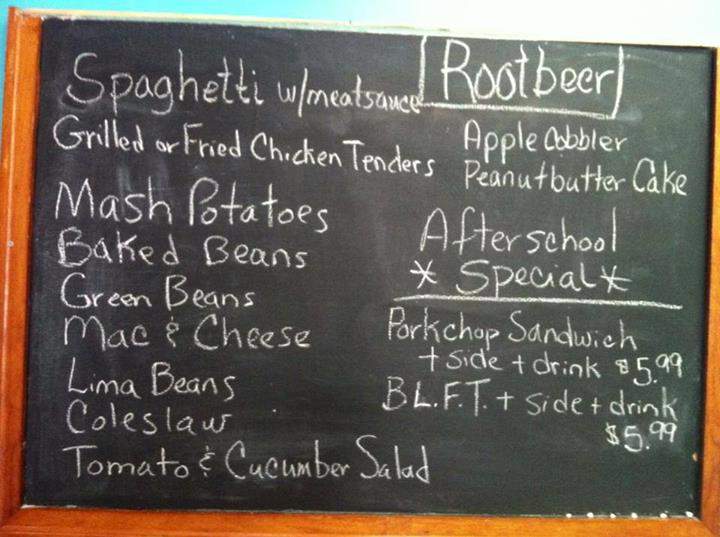 Spaghetti w/meatsauce
Grilled or Fried Chicken Tenders
Mash Potatoes
Baked Beans
Green Beans
Mac & Cheese
Lima Beans
Coleslaw
Tomato & Cucumber Salad
Rootbeer
Apple Cobbler
Peanutbutter Cake
Afterschool
* Special *
Porkchop Sandwich
+ side + drink $5.99
B.L.F.T. + side + drink
$5.99